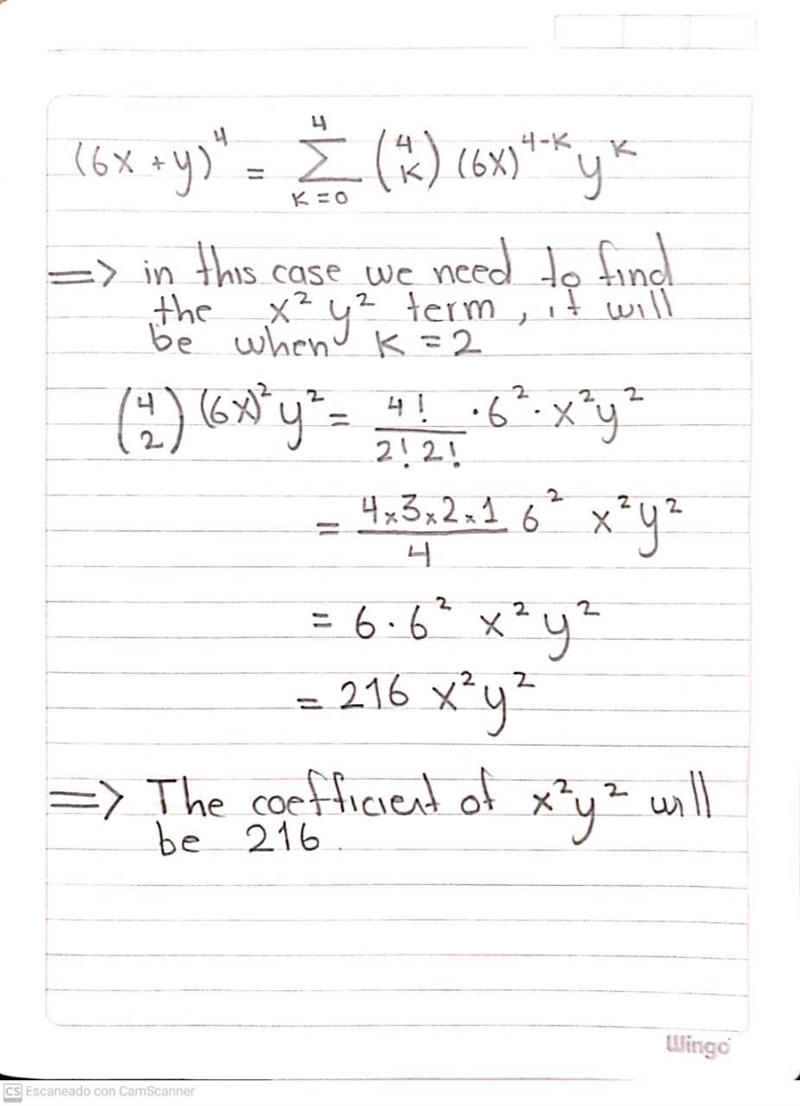 (6x + y)^4 = \sum_{K=0}^{4} \binom{4}{K} (6x)^{4-K} y^K
=> in this case we need to find
the x² y² term, it will
be when K = 2
\binom{4}{2} (6x)² y² = \frac{4!}{2! 2!} · 6² · x² y²
= \frac{4 × 3 × 2 × 1}{4} 6² x² y²
= 6 · 6² x² y²
= 216 x² y²
=> The coefficient of x² y² will
be 216.
Wingo
CS Escaneado con CamScanner